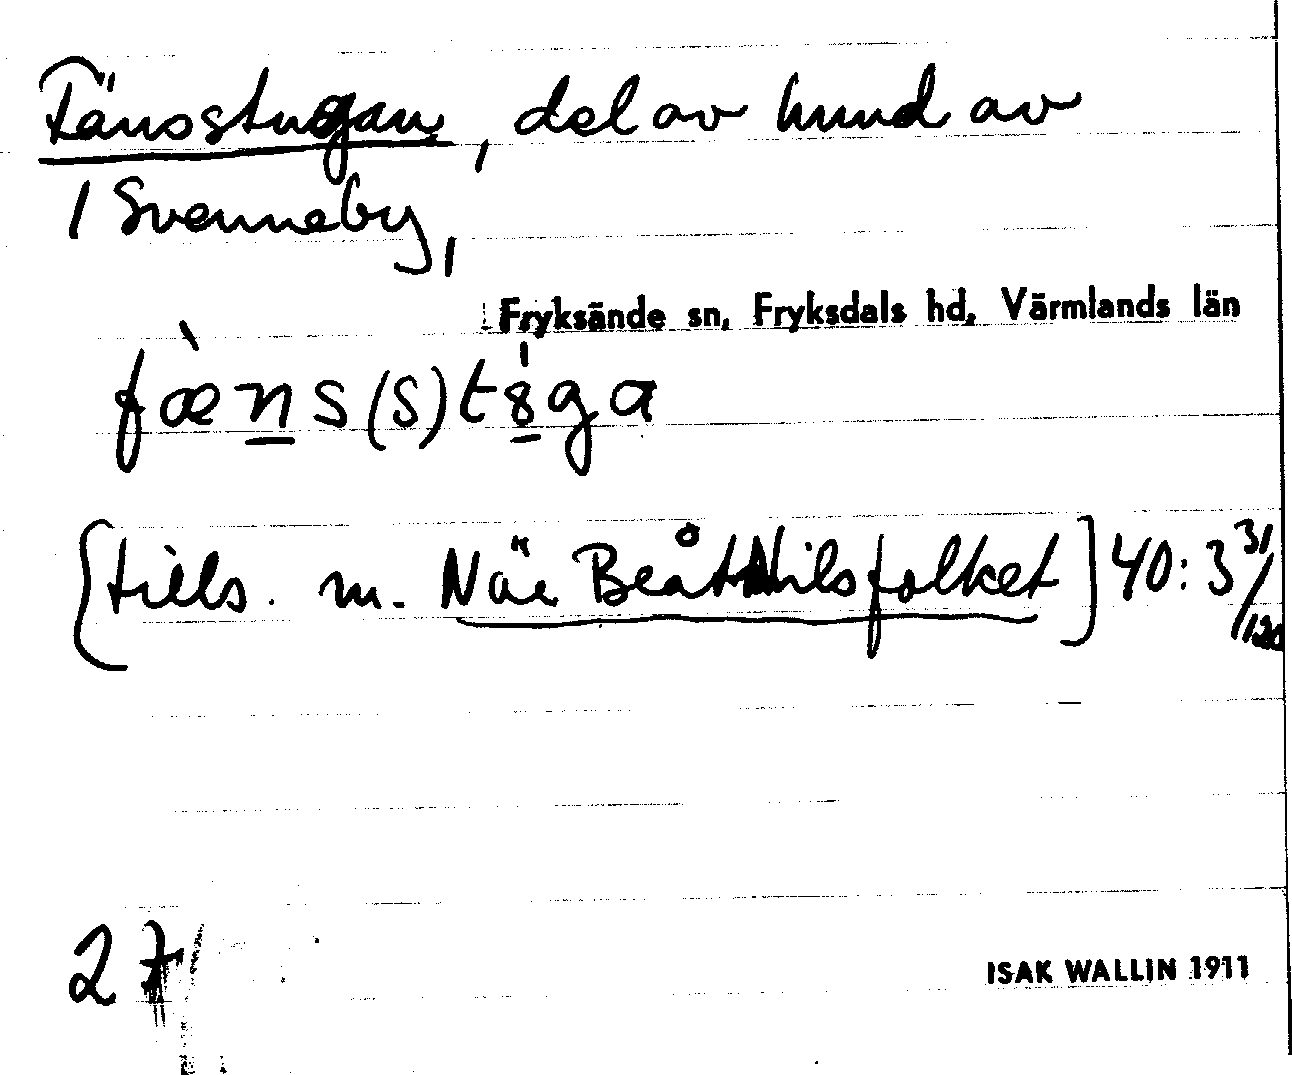 Fänsstugan, del av hmnd av
/ Svenneby,
Fryksände sn, Fryksdals hd, Värmlands län
fæns(s)tȣga
[tills. m. När Beåt Nilsfolket] 40:3 31/120
27
ISAK WALLIN 1911